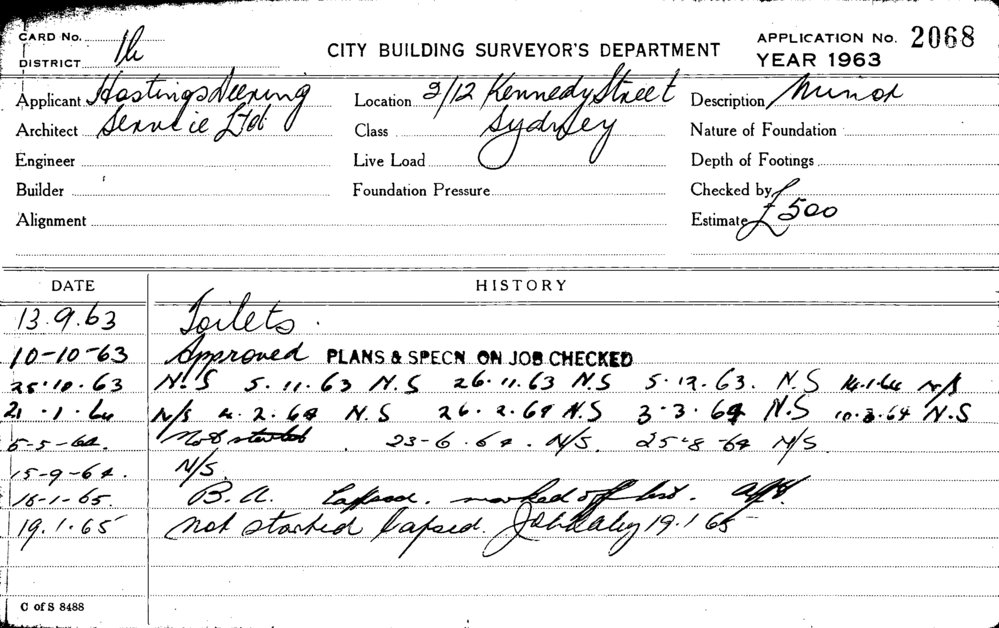 CARD NO.
DISTRICT
CITY BUILDING SURVEYOR'S DEPARTMENT
APPLICATION NO. 2068
YEAR 1963
Applicant Hastings Deering
Location 3/12 Kennedy Street
Description Minor
Architect Service Ltd
Class Sydney
Nature of Foundation
Engineer
Live Load
Depth of Footings
Builder
Foundation Pressure
Checked by
Alignment
Estimate £500
DATE HISTORY
13.9.63 Toilets.
10-10-63 Approved PLANS & SPECN ON JOB CHECKED
25.10.63 N.S 5.11.63 N.S 26.11.63 N.S 5.12.63. N.S 14.1.64 N/S
21.1.64 N/S 4.2.64 N.S 26.2.64 N.S 3-3.64 N.S 10.3.64 N.S
5-5-64. Not started. 23-6.64. N/S. 25-8-64 N/S
15-9-64. N/S.
16-1-65. B.A. Lapsed. marked off list.
19.1.65 Not started lapsed. 19.1.65
C of S 8488